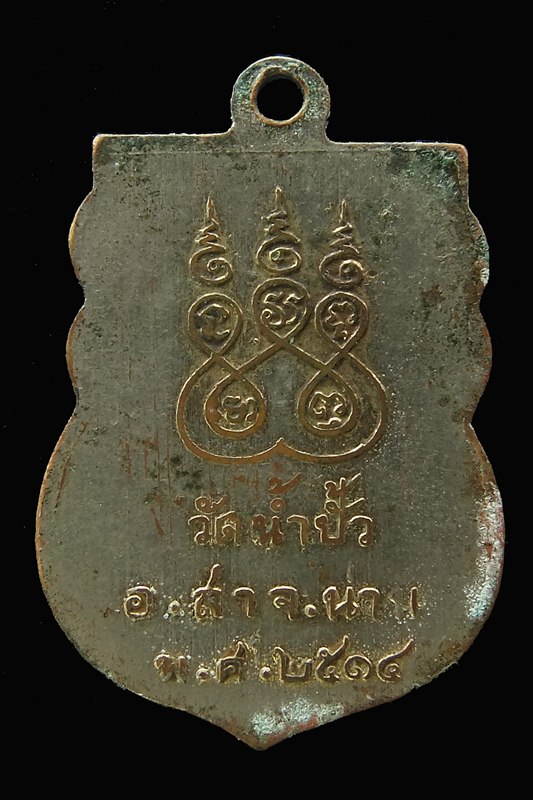 วัดน้ำปั้ว
อ.สา จ.น่าน
พ.ศ.๒๕๑๔